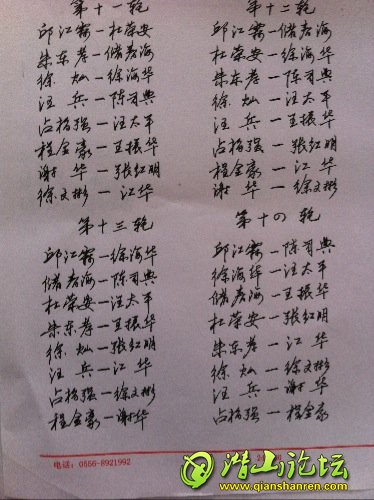 第十一轮
邱江霖—杜荣安
朱东孝—储彦海
徐 灿—徐海华
汪 兵—陈习典
占格强—汪太平
程金豪—王振华
谢 华—张红明
徐文彬—江华
第十二轮
邱江霖—储彦海
杜荣安—徐海华
朱东孝—陈习典
徐 灿—汪太平
汪 兵—王振华
占格强—张红明
程金豪—江华
谢 华—徐文彬
第十三轮
邱江霖—徐海华
储彦海—陈习典
杜荣安—汪太平
朱东孝—王振华
徐 灿—张红明
汪 兵—江 华
占格强—徐文彬
程金豪—谢华
第十四轮
邱江霖—陈习典
徐海华—汪太平
储彦海—王振华
杜荣安—张红明
朱东孝—江 华
徐 灿—徐文彬
汪 兵—谢华
占格强—程金豪
电话：0556-8921992
潜山论坛
www.qianshanren.com